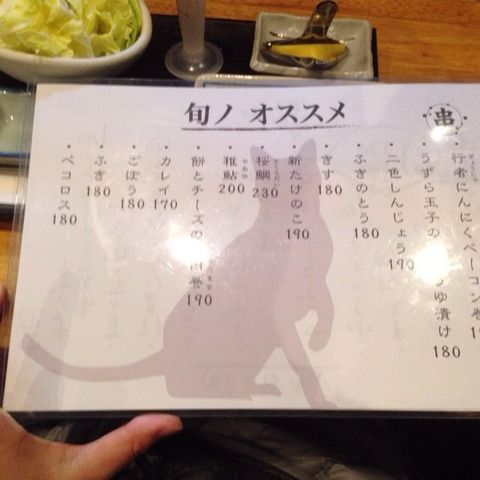 旬ノオススメ
串
・行者にんにくベーコン巻
・うずら玉子の ゆ漬け 180
・二色しんじょう 190
・ふきのとう 180
・きす 180
・新たけのこ 190
・桜鯛 230
・稚鮎 200
・餅とチーズの 巻 190
・カレイ 170
・ごぼう 180
・ふき 180
・ペコロス 180